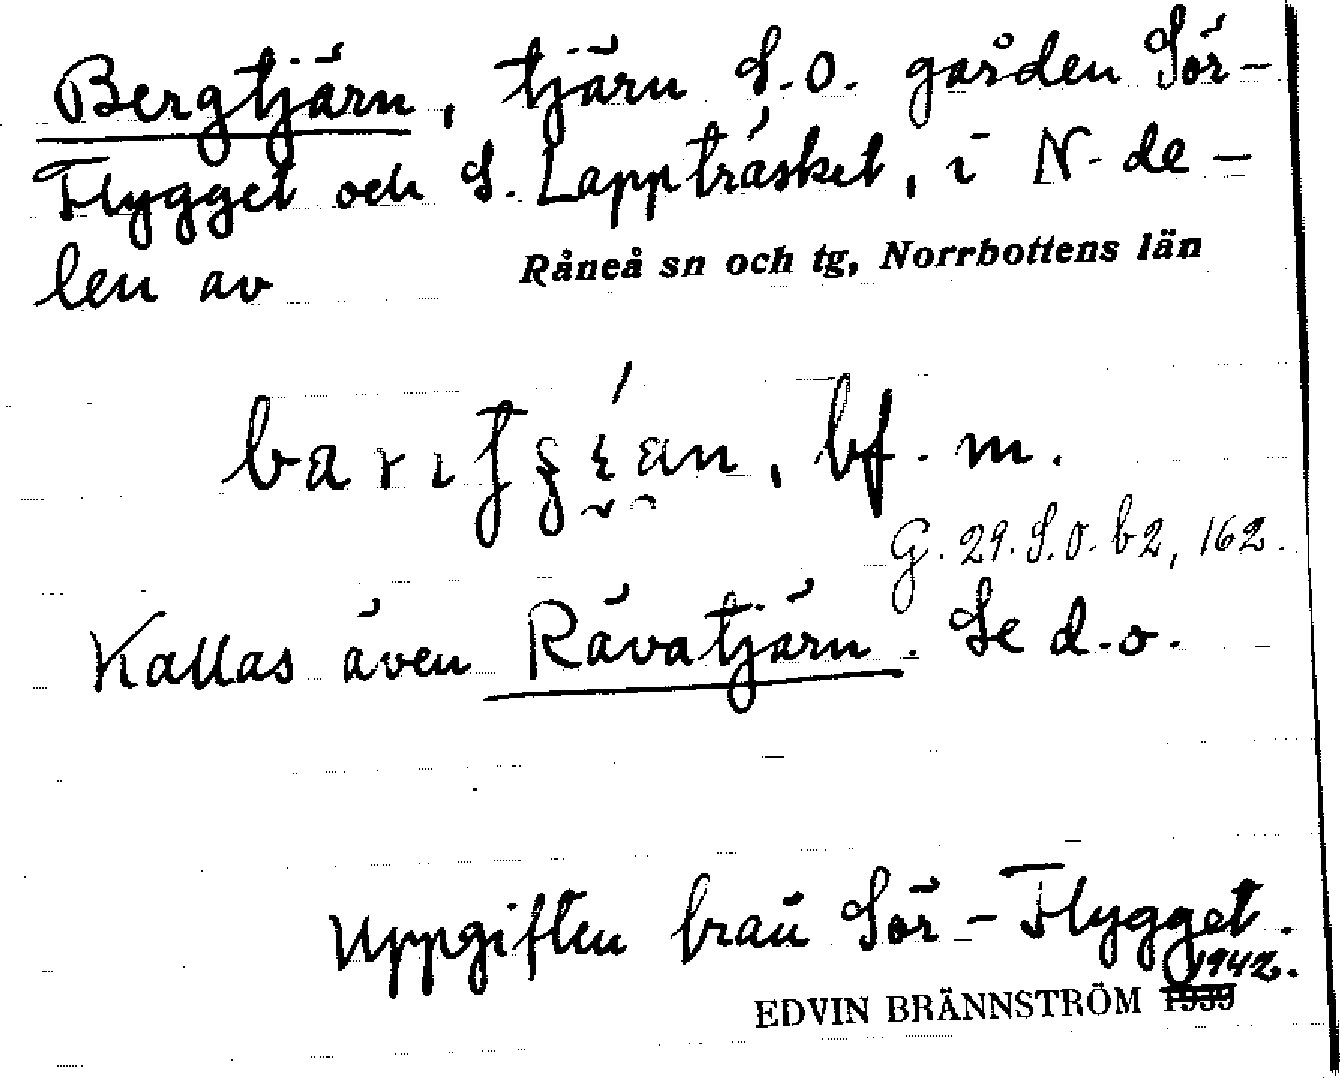 Bergtjärn, tjärn S.O. gården Sör-
Flygget och S. Lappträsket, i N. de-
len av Råneå sn och tg, Norrbottens län
bf. m.
G. 29. S.O. b2, 162.
Kallas även Rävatjärn. Se d.o.
Uppgiften från Sör-Flygget.
1942.
EDVIN BRÄNNSTRÖM 1939